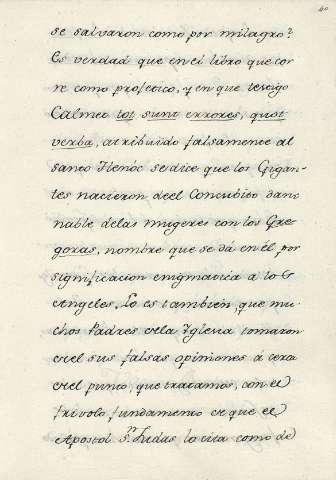 40
se salvaron como por milagro?
Es verdad que en el libro que cor
re como profetico, y en que testigo
Calmet tot sunt errores, quot
verba, atribuido falsamente al
santo Henóc se dice que los Gigan
tes nacieron deel Concubito dam
nable delas mugeres con los Gre
goras, nombre que se dá en él, por
significacion enigmatica a los
Angeles. Lo es tambien, que mu
chos Padres dela Yglesia tomaron
del sus falsas opiniones á cerca
del punto, que tratamos, con el
frivolo fundamento de que el
Apostol Sn. Judas lo cita como de